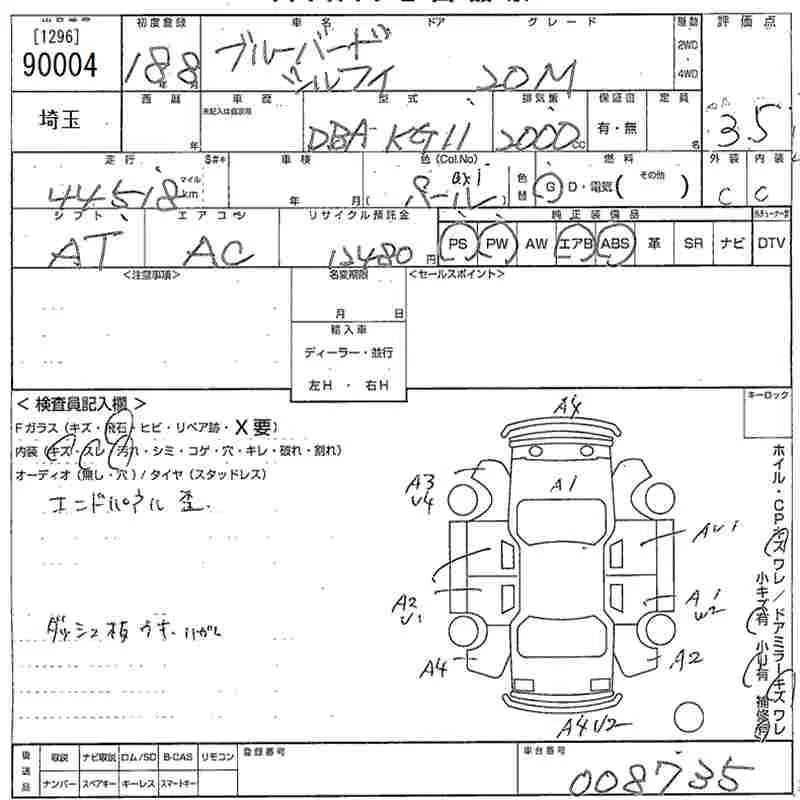 [1296]
90004
初度登録
車名
ドア
グレード
駆動
評価点
18年8月
ブルーバード
シルフィ
20M
2WD
4WD
埼玉
西暦
年
車歴
未記入は自家用
型式
DBA-KG11
排気量
2000cc
保証書
有・無
定員
名
3.5
走行
44518
マイル
km
S#*
車検
年 月
色(Col.No)
パール
色替
燃料
G D・電気( その他 )
外装
C
内装
C
シフト
AT
エアコン
AC
リサイクル預託金
12480円
純正装備品
PS PW AW エアB ABS 革 SR ナビ DTV
<注意事項>
名変期限
月 日
輸入車
ディーラー・並行
左H ・ 右H
<セールスポイント>
<検査員記入欄>
Fガラス(キズ・飛石・ヒビ・リペア跡・X要)
内装(キズ・スレ・汚れ・シミ・コゲ・穴・キレ・破れ・割れ)
オーディオ(無し・穴)/タイヤ(スタッドレス)
エンドパネル 歪
キーロック
A4
A1
A3
U4
AU1
A2
U1
A1
W2
A4
A2
A4U2
ホイル・CPキズ ワレ/ドアミラーキズ ワレ
小キズ有 小U有 補修有
後送品
取説 ナビ取説 ロム/SD B-CAS リモコン
ナンバー スペアキー キーレス スマートキー
登録番号
車台番号
008735